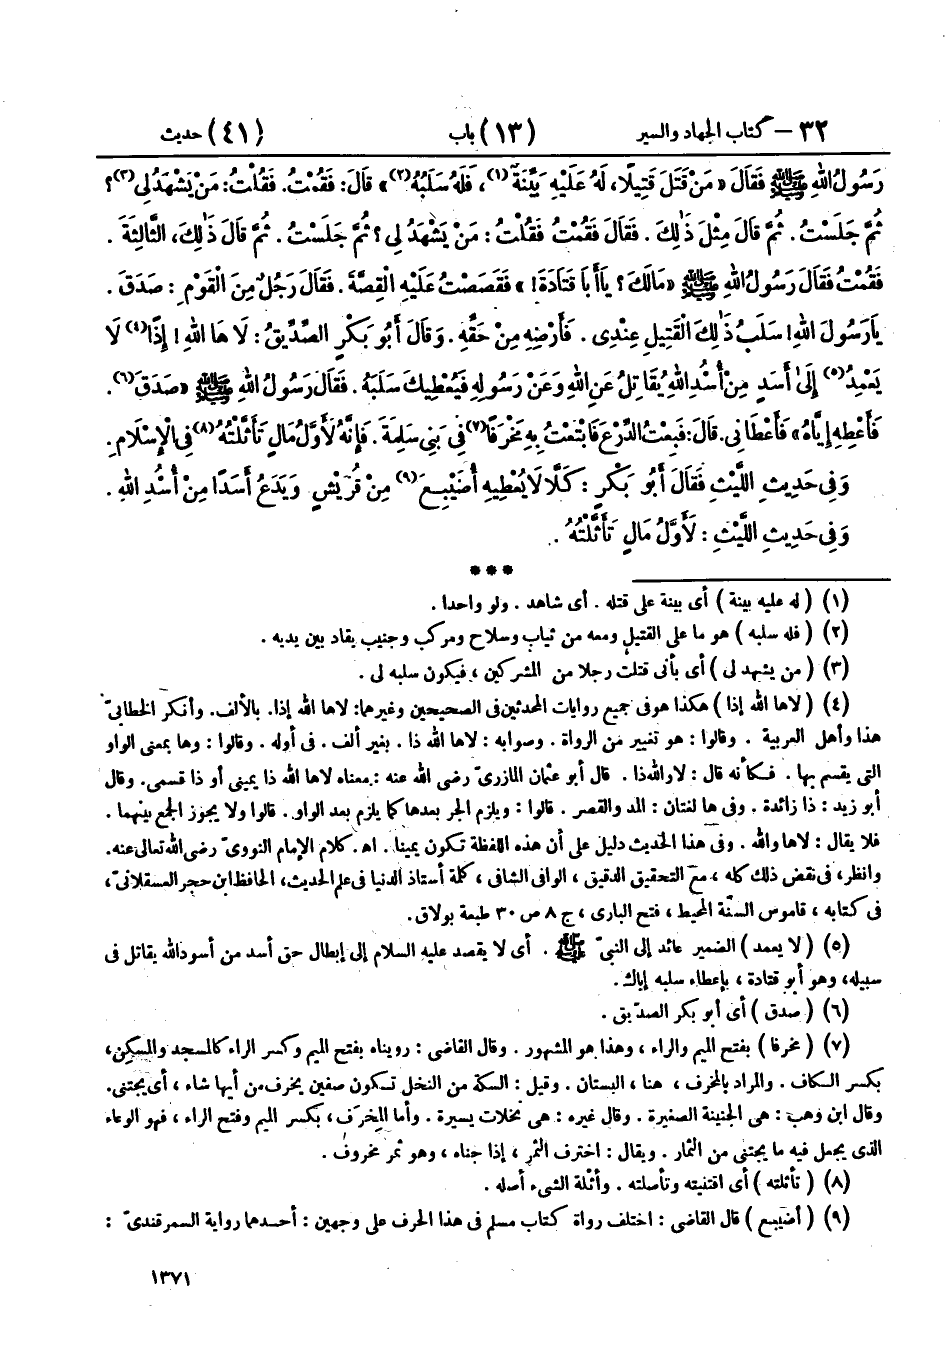 ٣٢ – كتاب الجهاد والسير (١٣) باب (٤١) حديث
رَسُولُ اللهِ ﷺ فَقَالَ « مَنْ قَتَلَ قَتِيلًا، لَهُ عَلَيْهِ بَيِّنَةٌ(١)، فَلَهُ سَلَبُهُ(٢)» قَالَ: فَقُمْتُ. فَقُلْتُ: مَنْ يَشْهَدُ لِي(٣)؟
ثُمَّ جَلَسْتُ. ثُمَّ قَالَ مِثْلَ ذٰلِكَ. فَقَالَ فَقُمْتُ فَقُلْتُ: مَنْ يَشْهَدُ لِي؟ ثُمَّ جَلَسْتُ. ثُمَّ قَالَ ذٰلِكَ، الثَّالِثَةَ.
فَقُمْتُ فَقَالَ رَسُولُ اللهِ ﷺ «مَالَكَ؟ يَا أَبَا قَتَادَةَ!» فَقَصَصْتُ عَلَيْهِ الْقِصَّةَ. فَقَالَ رَجُلٌ مِنَ الْقَوْمِ: صَدَقَ.
يَا رَسُولَ اللهِ! سَلَبُ ذٰلِكَ الْقَتِيلِ عِنْدِي. فَأَرْضِهِ مِنْ حَقِّهِ. وَقَالَ أَبُو بَكْرٍ الصِّدِّيقُ: لَا هَا اللهِ! إِذًا(٤) لَا
يَعْمِدُ(٥) إِلَىٰ أَسَدٍ مِنْ أُسُدِ اللهِ يُقَاتِلُ عَنِ اللهِ وَعَنْ رَسُولِهِ فَيُعْطِيكَ سَلَبَهُ. فَقَالَ رَسُولُ اللهِ ﷺ «صَدَقَ(٦).
فَأَعْطِهِ إِيَّاهُ» فَأَعْطَانِي. قَالَ: فَبِعْتُ الدِّرْعَ فَابْتَعْتُ بِهِ مَخْرَفًا(٧) فِي بَنِي سَلِمَةَ. فَإِنَّهُ لَأَوَّلُ مَالٍ تَأَثَّلْتُهُ(٨) فِي الْإِسْلَامِ.
وَفِي حَدِيثِ اللَّيْثِ فَقَالَ أَبُو بَكْرٍ: كَلَّا لَا يُعْطِيهِ أُضَيْبِعَ(٩) مِنْ قُرَيْشٍ وَيَدَعُ أَسَدًا مِنْ أُسُدِ اللهِ.
وَفِي حَدِيثِ اللَّيْثِ: لَأَوَّلُ مَالٍ تَأَثَّلْتُهُ.
***
(١) (له عليه بينة) أى بينة على قتله. أى شاهد. ولو واحدا.
(٢) (فله سلبه) هو ما على القتيل ومعه من ثياب وسلاح ومركب وجنيب يقاد بين يديه.
(٣) (من يشهد لى) أى بأنى قتلت رجلا من المشركين، فيكون سلبه لى.
(٤) (لاها الله إذا) هكذا هو فى جميع روايات المحدثين فى الصحيحين وغيرهما: لاها الله إذا. بالألف. وأنكر الخطابىّ
هذا وأهل العربية. وقالوا: هو تغيير من الرواة. وصوابه: لاها الله ذا. بغير ألف. فى أوله. وقالوا: وها بمعنى الواو
التى يقسم بها. فكأنه قال: لا والله ذا. قال أبو عثمان المازرىّ رضى الله عنه: معناه لاها الله ذا يمينى أو ذا قسمى. وقال
أبو زيد: ذا زائدة. وفى ها لغتان: المد والقصر. قالوا: ويلزم الجر بعدها كما يلزم بعد الواو. قالوا ولا يجوز الجمع بينهما.
فلا يقال: لاها والله. وفى هذا الحديث دليل على أن هذه اللفظة تكون يمينا. اهـ. كلام الإمام النووىّ رضى الله تعالى عنه.
وانظر، فى نقض ذلك كله، مع التحقيق الدقيق، الوافى الشافى، كلمة أستاذ الدنيا فى علم الحديث، الحافظ ابن حجر العسقلانىّ،
فى كتابه، قاموس السنّة المحيط، فتح البارى، ج ٨ ص ٣٠ طبعة بولاق.
(٥) (لا يعمد) الضمير عائد إلى النبىّ ﷺ. أى لا يقصد عليه السلام إلى إبطال حق أسد من أسود الله يقاتل فى
سبيله، وهو أبو قتادة، بإعطاء سلبه إياك.
(٦) (صدق) أى أبو بكر الصدّيق.
(٧) (مخرفا) بفتح الميم والراء، وهذا هو المشهور. وقال القاضى: رويناه بفتح الميم وكسر الراء كالمسجد والمسكِن،
بكسر الكاف. والمراد بالمخرف، هنا، البستان. وقيل: السكة من النخل تكون صفين يخرف من أيها شاء، أى يجتنى.
وقال ابن وهب: هى الجنينة الصغيرة. وقال غيره: هى نخلات يسيرة. وأما المِخرَف، بكسر الميم وفتح الراء، فهو الوعاء
الذى يجعل فيه ما يجتنى من الثمار. ويقال: اخترف الثمر، إذا جناه، وهو ثمر مخروف.
(٨) (تأثلته) أى اقتنيته وتأصلته. وأثلة الشىء أصله.
(٩) (أضيبع) قال القاضى: اختلف رواة كتاب مسلم فى هذا الحرف على وجهين: أحدهما رواية السمرقندىّ:
١٣٧١